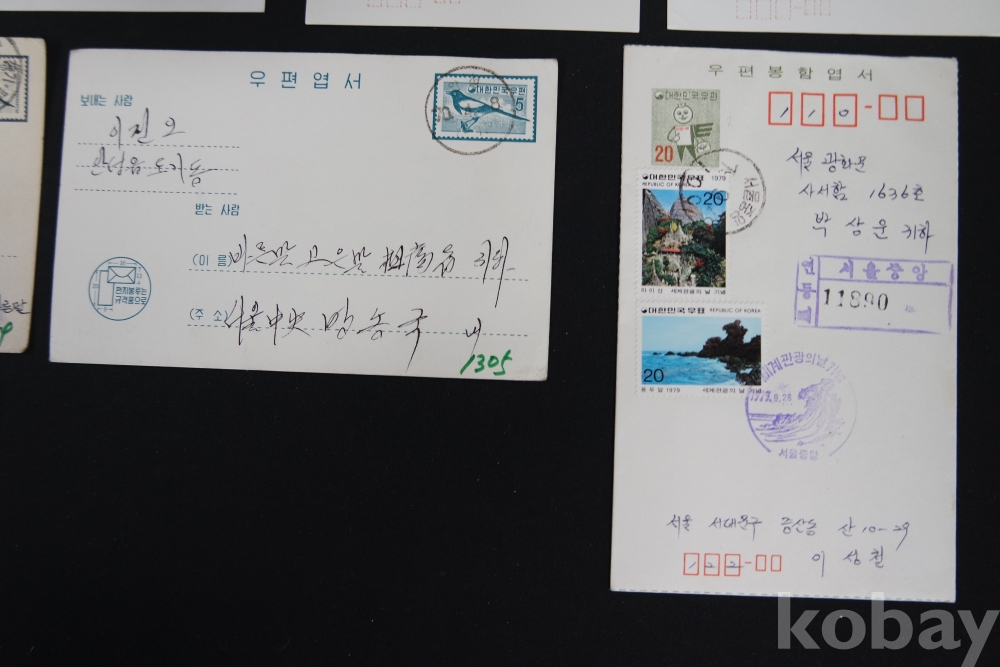 우편엽서
보내는 사람
이진오
안성읍 도기동
대한민국우편
5
받는 사람
(이 름) 바른말 고은말 귀하
(주 소) 서울中央 방송국 내
편지봉투는
규격품으로
1305
우편봉함엽서
대한민국우편
20
110-
서울 광화문
사서함 1636호
박상운 귀하
대한민국우표 1979
REPUBLIC OF KOREA
20
마이산 세계관광의 날 기념
서울중앙
11890
대한민국우표 REPUBLIC OF KOREA
20
용두암 1979 세계관광의 날 기념
세계관광의날기념
1979.9.28
서울중앙
서울 서대문구 증산동 산 10-29
122-
이상철
kobay